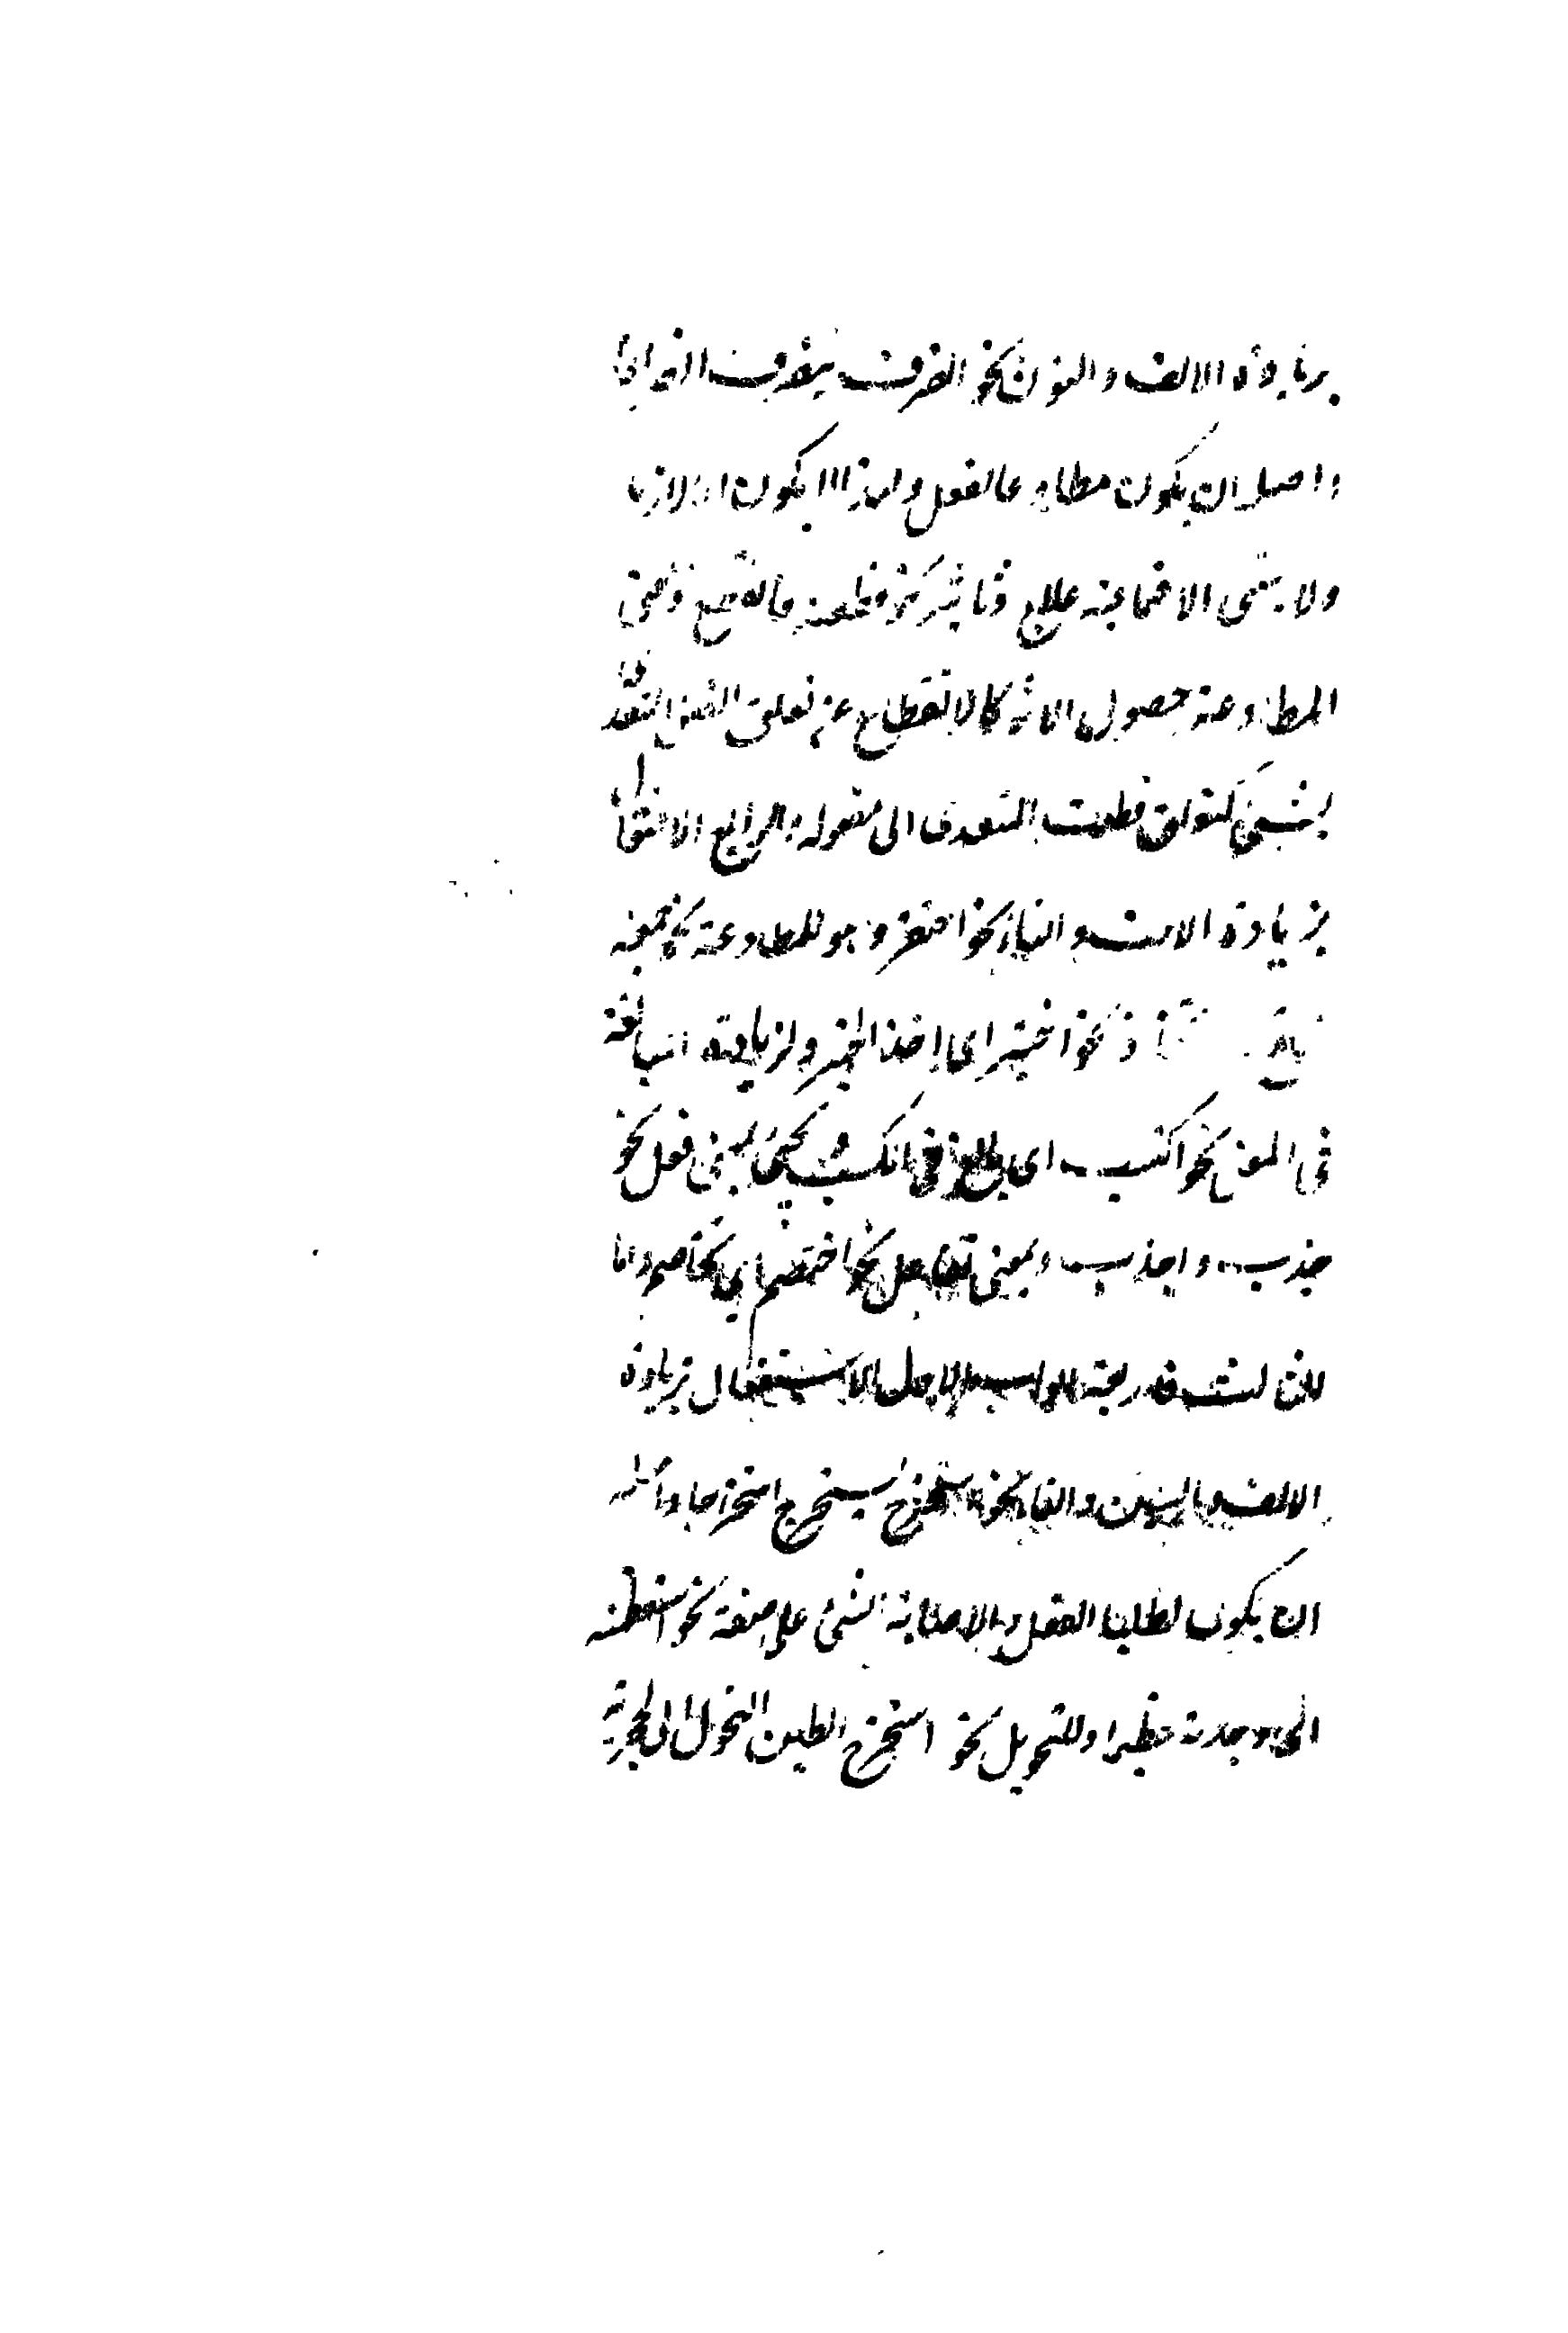 بزيادة الالف والنون نحو انصرف ينصرف انصرافا
واصله ان يكون مطاوعا لفعل ولهذا لا يكون الا لازما
ولا يبنى الا مما فيه علاج وتاثير نحو قطعته فانقطع ومعنى
المطاوعة حصول الاثر كالانقطاع عن تعلق الفعل المتعدى
بشيئ كتعلق قطعت المتعدى الى مفعوله والرابع الافتعال
بزيادة الالف والتاء نحو احتقر وهو للمطاوعة نحو جمعته
ذ نحو اختبز اى اخذ الخبز ولزيادة المبالغة
فى المعنى نحو اكتسب اى بالغ فى الكسب ويجئ بمعنى فعل نحو
جذب واجتذب وبمعنى تفاعل نحو اختصم اى تخاصم واما
الثالث فاربعة ابواب الاول الاستفعال بزيادة
الالف والسين والتاء نحو استخرج يستخرج استخراجا واصله
ان يكون لطلب الفعل والاصابة الشئ على صفة نحو استعظمته
اى وجدته عظيما وللتحويل نحو استحجر الطين اى تحول الى الحجرية